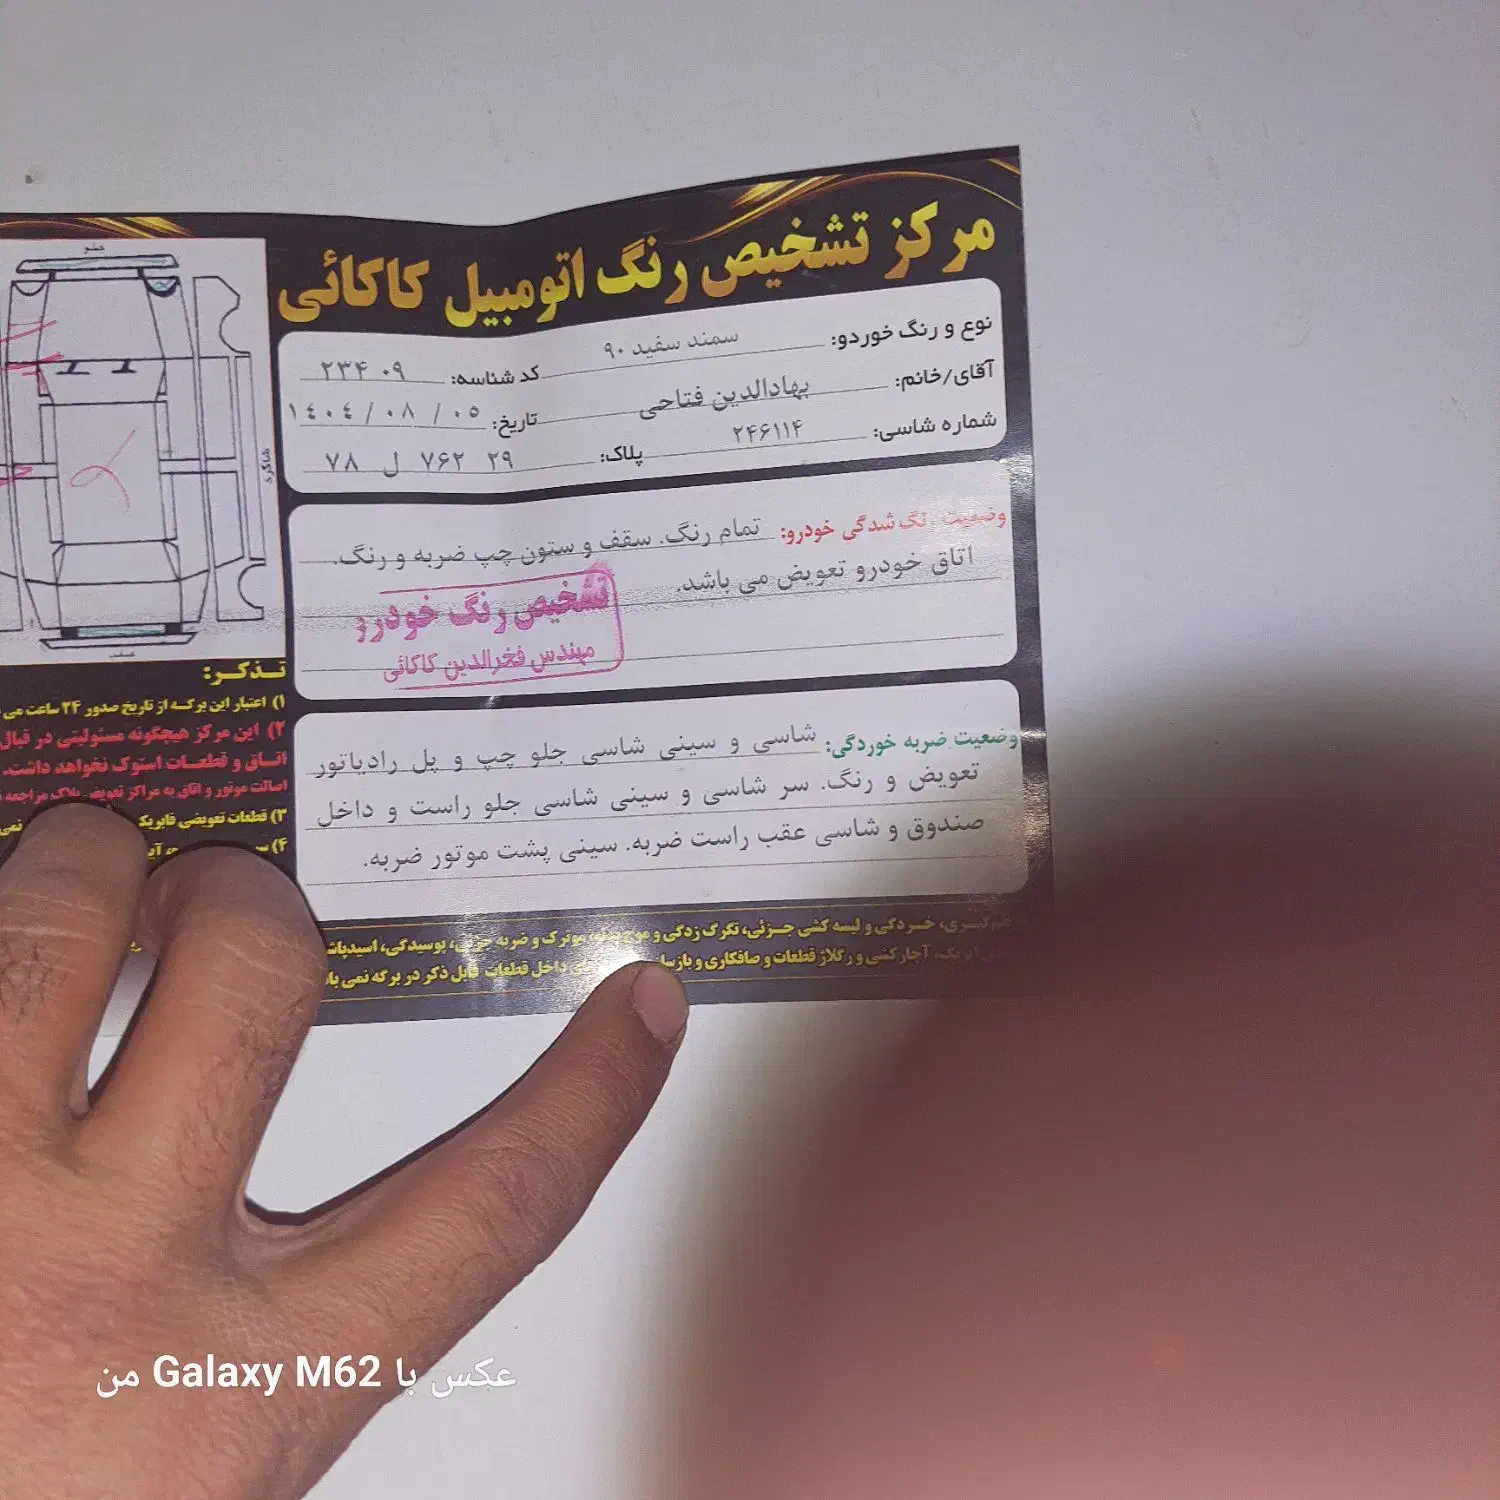 مرکز تشخیص رنگ اتومبیل کاکائی
نوع و رنگ خوردو: سمند سفید ۹۰
کد شناسه: ۲۳۴۰۹
آقای/خانم: بهادالدین فتاحی
تاریخ: ۱۴۰۴/۰۸/۰۵
شماره شاسی: ۲۴۶۱۱۴
پلاک: ۲۹ ۷۶۲ ل ۷۸
وضعیت رنگ شدگی خودرو: تمام رنگ. سقف و ستون چپ ضربه و رنگ.
اتاق خودرو تعویض می باشد.
تشخیص رنگ خودرو
مهندس فخرالدین کاکائی
وضعیت ضربه خوردگی: شاسی و سینی شاسی جلو چپ و پل رادیاتور
تعویض و رنگ. سر شاسی و سینی شاسی جلو راست و داخل
صندوق و شاسی عقب راست ضربه. سینی پشت موتور ضربه.
خردگی و لیسه کشی جزئی، تگرگ زدگی و
موترک و ضربه جزئی، پوسیدگی، اسیدپاش
آچارکشی و رگلاژ قطعات و صافکاری و
داخل قطعات قابل ذکر در برگه نمی با
جلو
شاگرد
عقب
تذکر:
۱) اعتبار این برگه از تاریخ صدور ۲۴ ساعت می
۲) این مرکز هیچگونه مسئولیتی در قبال
اتاق و قطعات استوک نخواهد داشت.
اصالت موتور و اتاق به مراکز تعویض پلاک مراجعه
۳) قطعات تعویضی فابریک
نمی
۴)
عکس با Galaxy M62 من